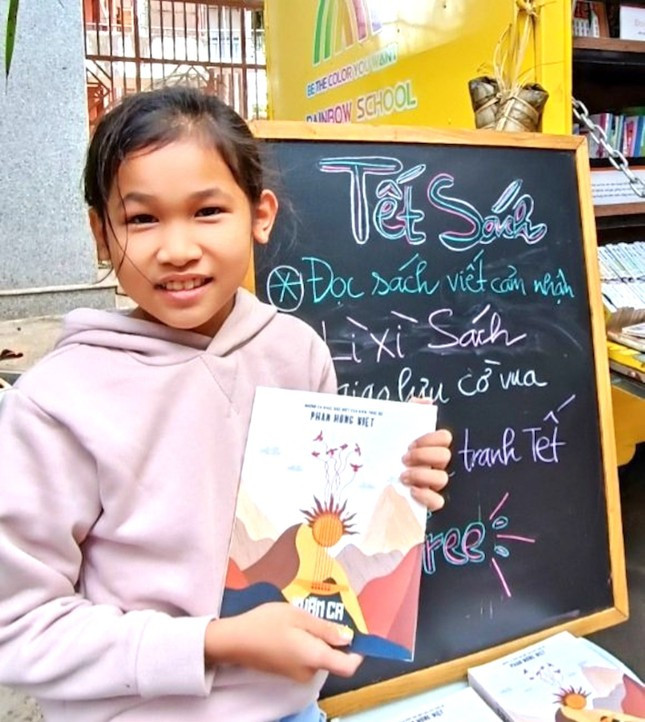 BE THE COLOR YOU WANT
RAINBOW SCHOOL
Tết Sách
Đọc sách viết cảm nhận
Lì xì Sách
giao lưu cờ vua
tranh Tết
Free
PHAN HỒNG VIỆT
XUÂN CA